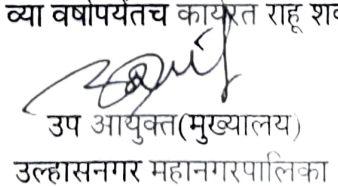 व्या वर्षापर्यंतच कार्यरत राहू
उप आयुक्त(मुख्यालय)
उल्हासनगर महानगरपालिका